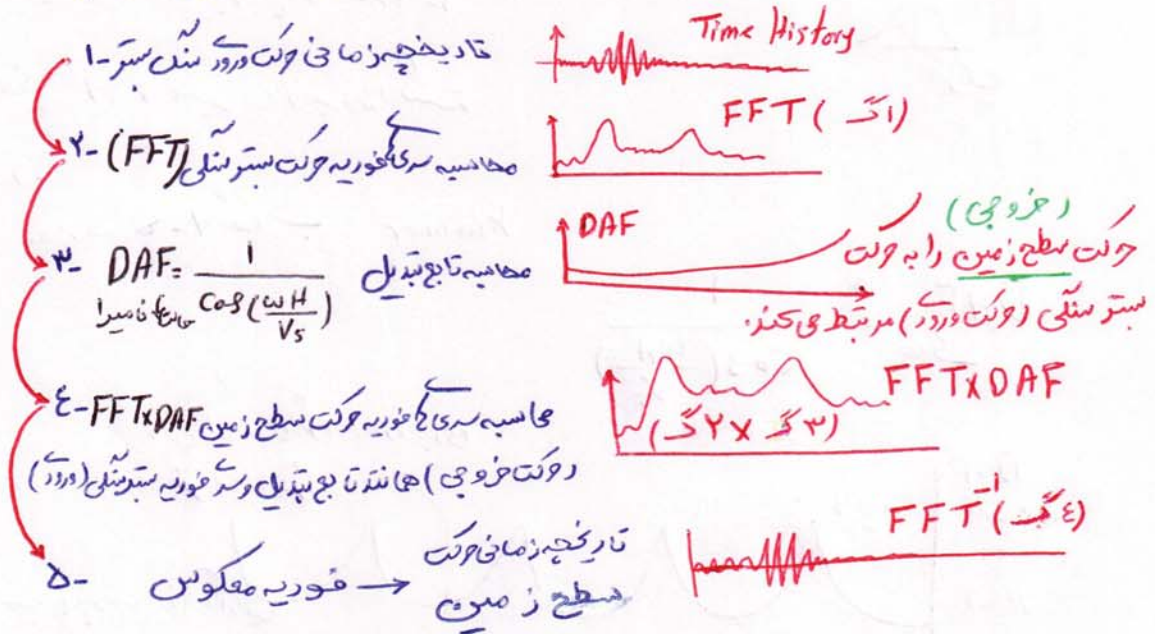 ۱- تاریخچه زمانی حرکت ورودی سنگ بستر
Time History
۲- (FFT) محاسبه سری های فوریه حرکت بستر سنگی
FFT (گ۱)
۳- DAF = 1 / Cos(ωH / Vs) محاسبه تابع تبدیل
حالت نامیرا
DAF
(خروجی)
حرکت سطح زمین را به حرکت
بستر سنگی (حرکت ورودی) مرتبط می کند.
٤- FFTxDAF محاسبه سری های فوریه حرکت سطح زمین
(حرکت خروجی) همانند تابع تبدیل و سری فوریه بستر سنگی (ورودی)
FFTxDAF
(گ۳ x گ۲)
۵- فوریه معکوس → تاریخچه زمانی حرکت
سطح زمین
FFT⁻¹ (گ٤)